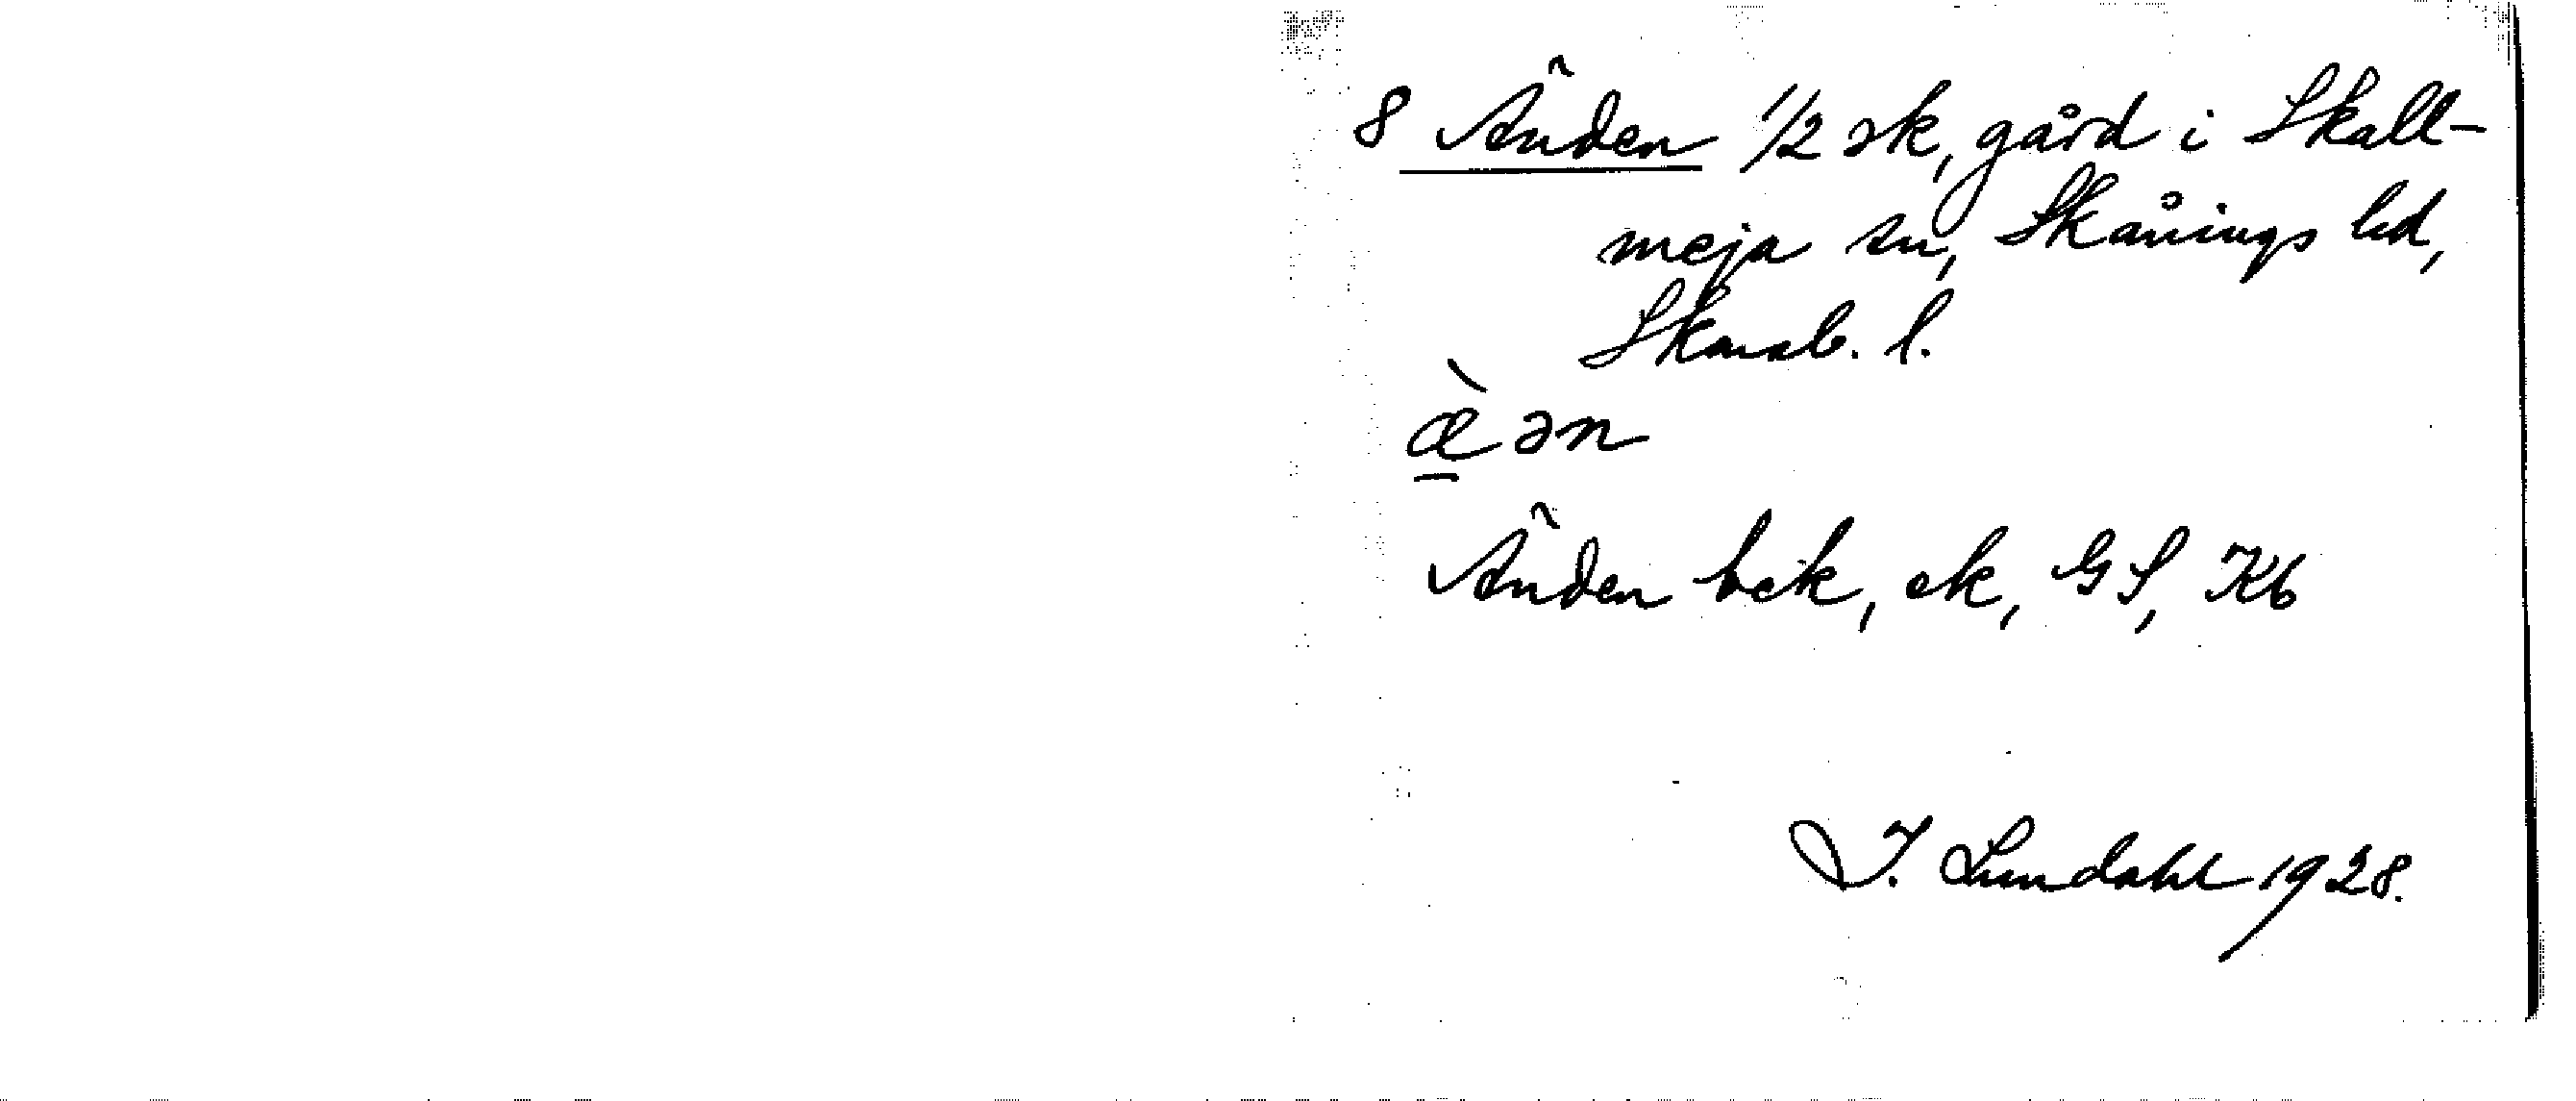 8 Änden 1/2 sk, gård i Skall-
meja sn, Skånings hd,
Skarab. l.
æ̀ ən
Änden bck, ek, GS, Kb
I. Lundahl 1928.